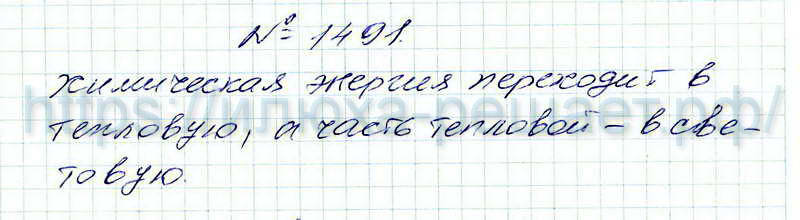 № 1491.
химическая энергия переходит в
тепловую, а часть тепловой – в све-
товую.
https://илюха-решает.рф/